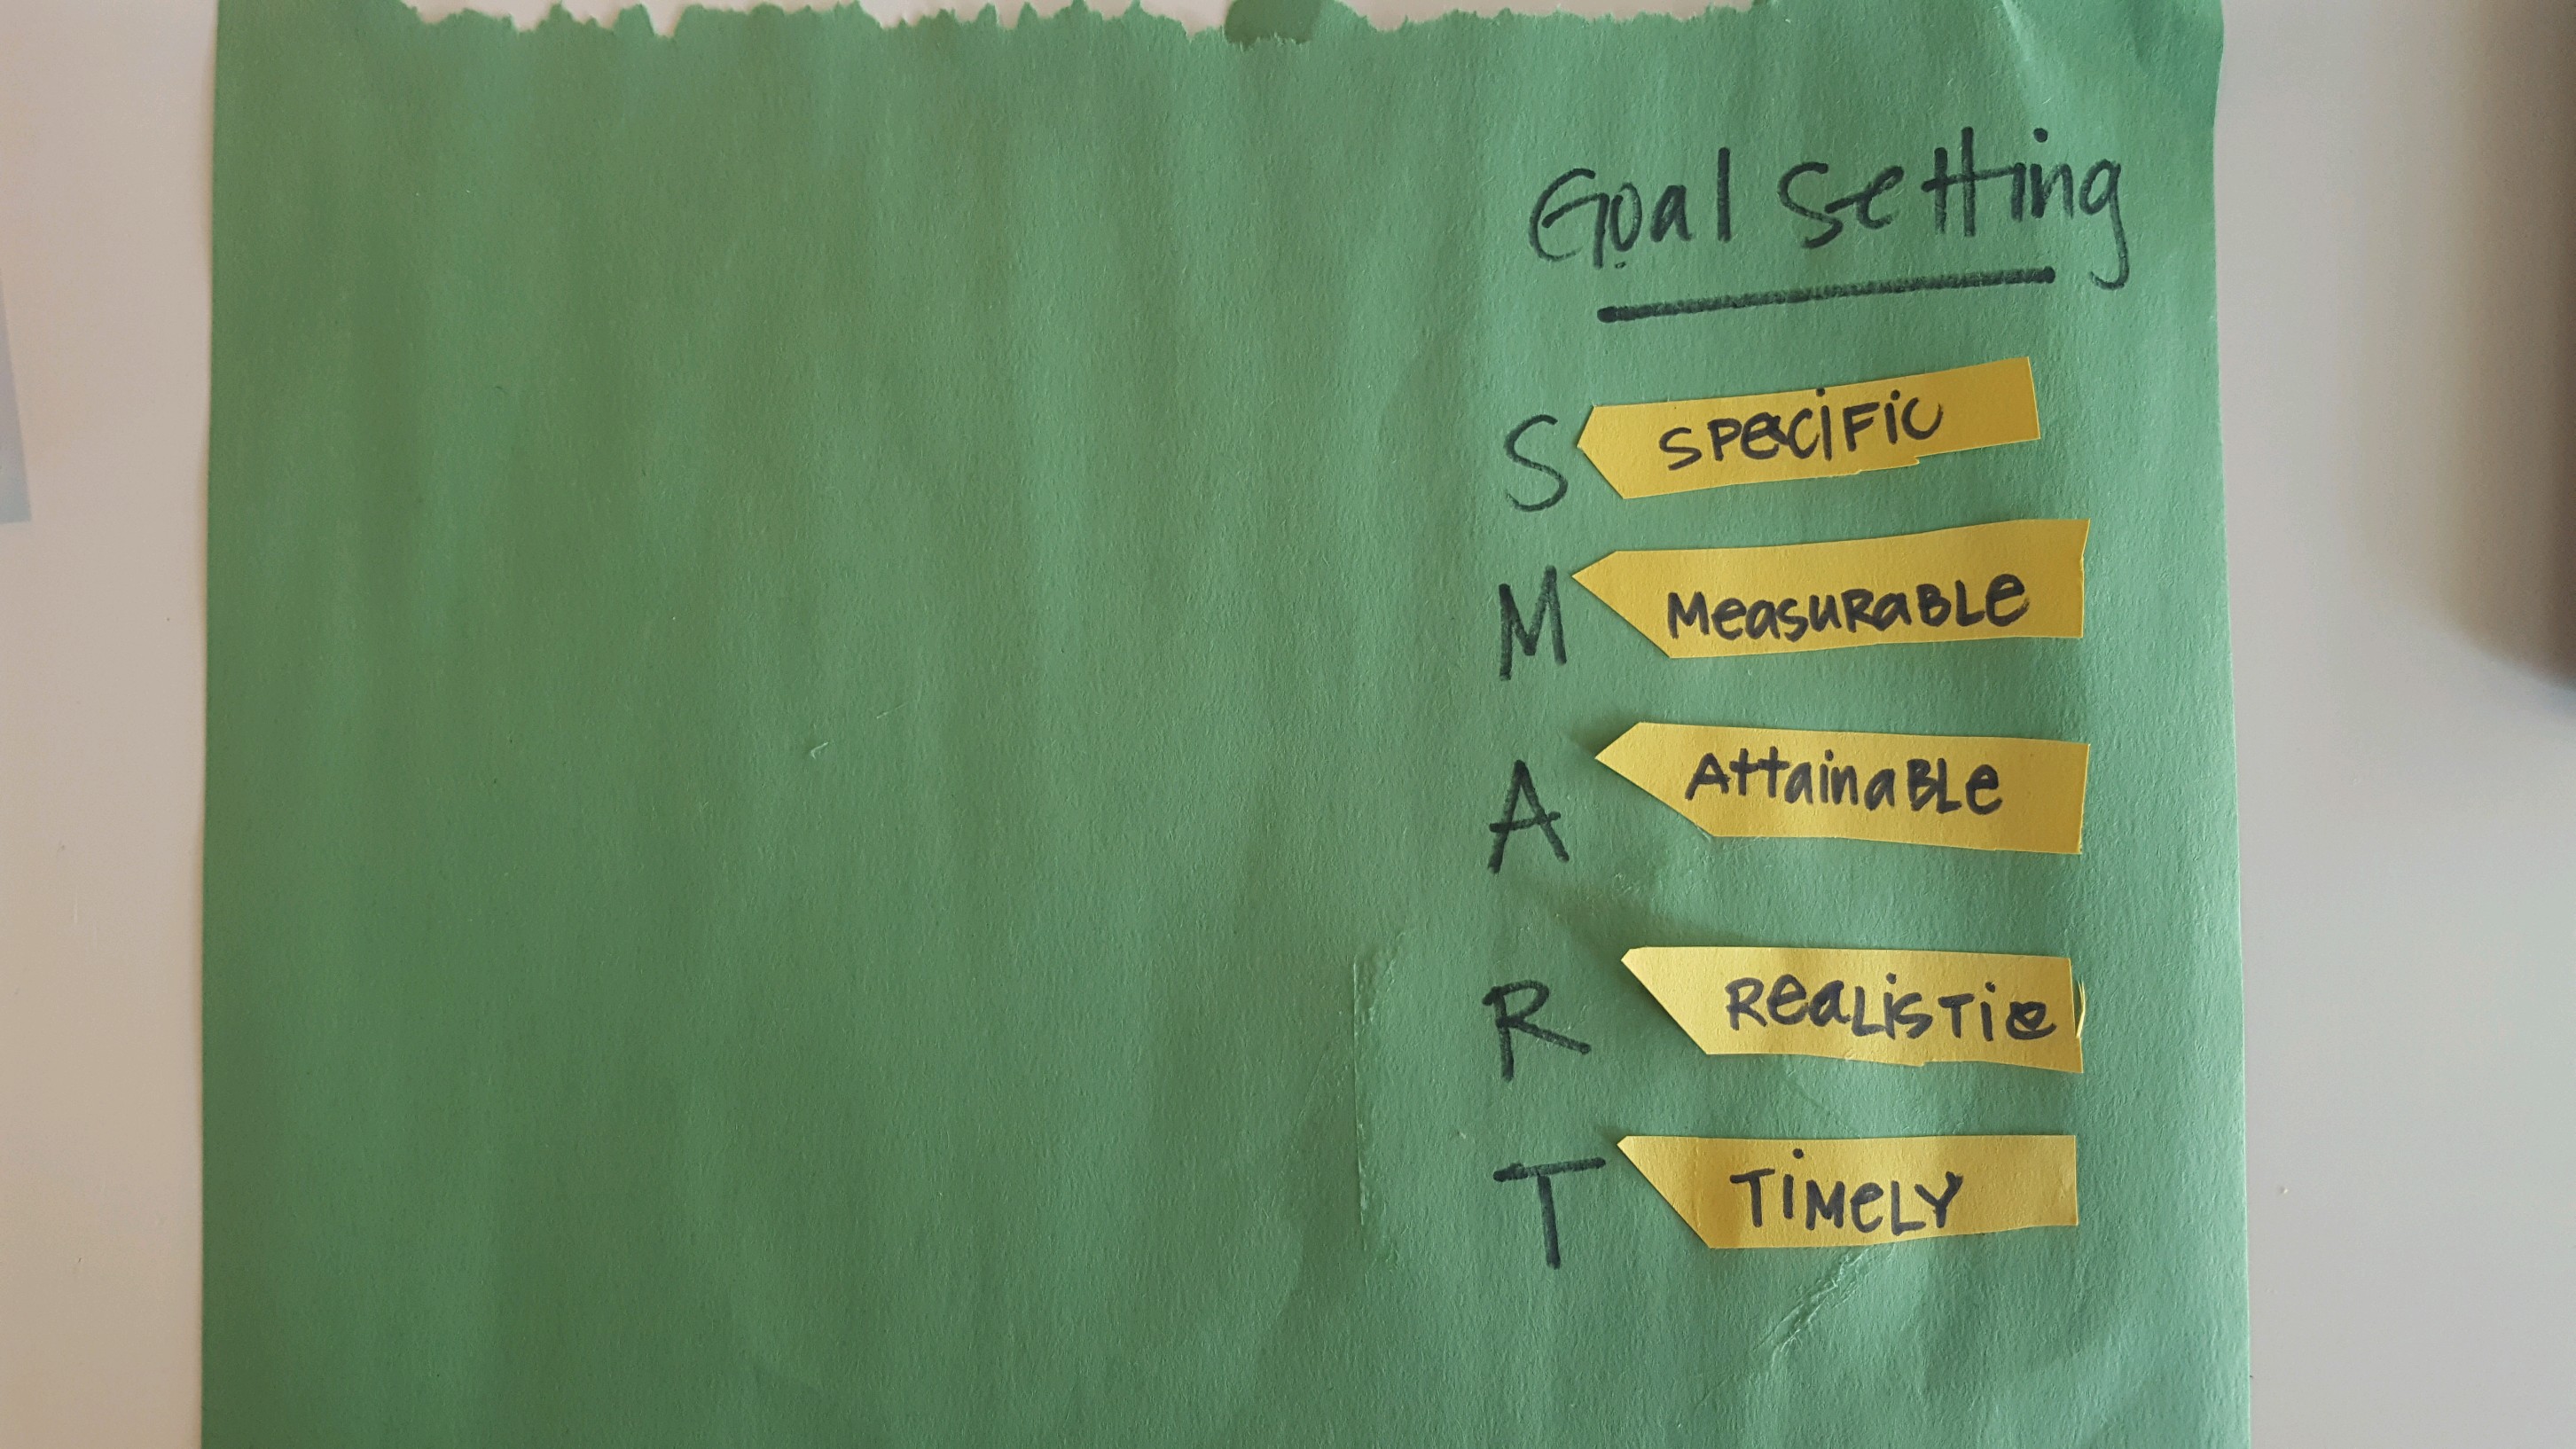 Goal Setting
S SPeciFic
M MeasuRaBLe
A AttainaBLe
R ReaListic
T TiMeLY